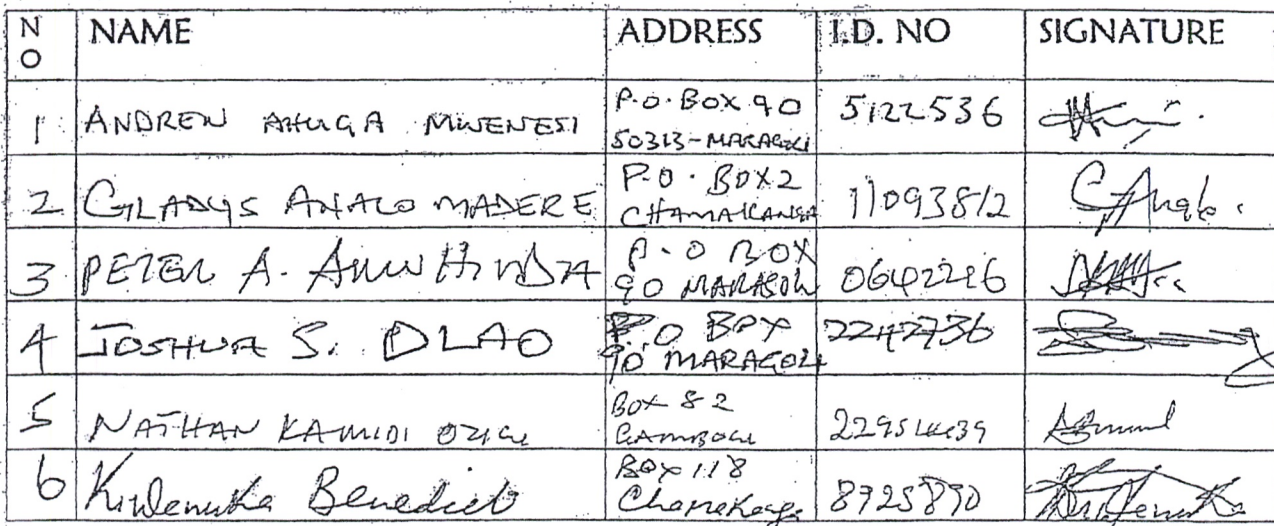 NO NAME ADDRESS I.D. NO SIGNATURE
1 ANDREW AHUGA MWENESI P.O. BOX 90 50313-MARAGOLI 5122536
2 GLADYS ANALO MADERE P.O. BOX 2 CHAMAKANGA 11093812
3 PETER A. P.O BOX 90 MARAGOLI 0642216
4 JOSHUA S. OLAO P.O BOX 90 MARAGOLI 2242736
5 NATHAN KAMIDI BOX 82 GAMBOGI
6 Benedict BOX 118 8725890